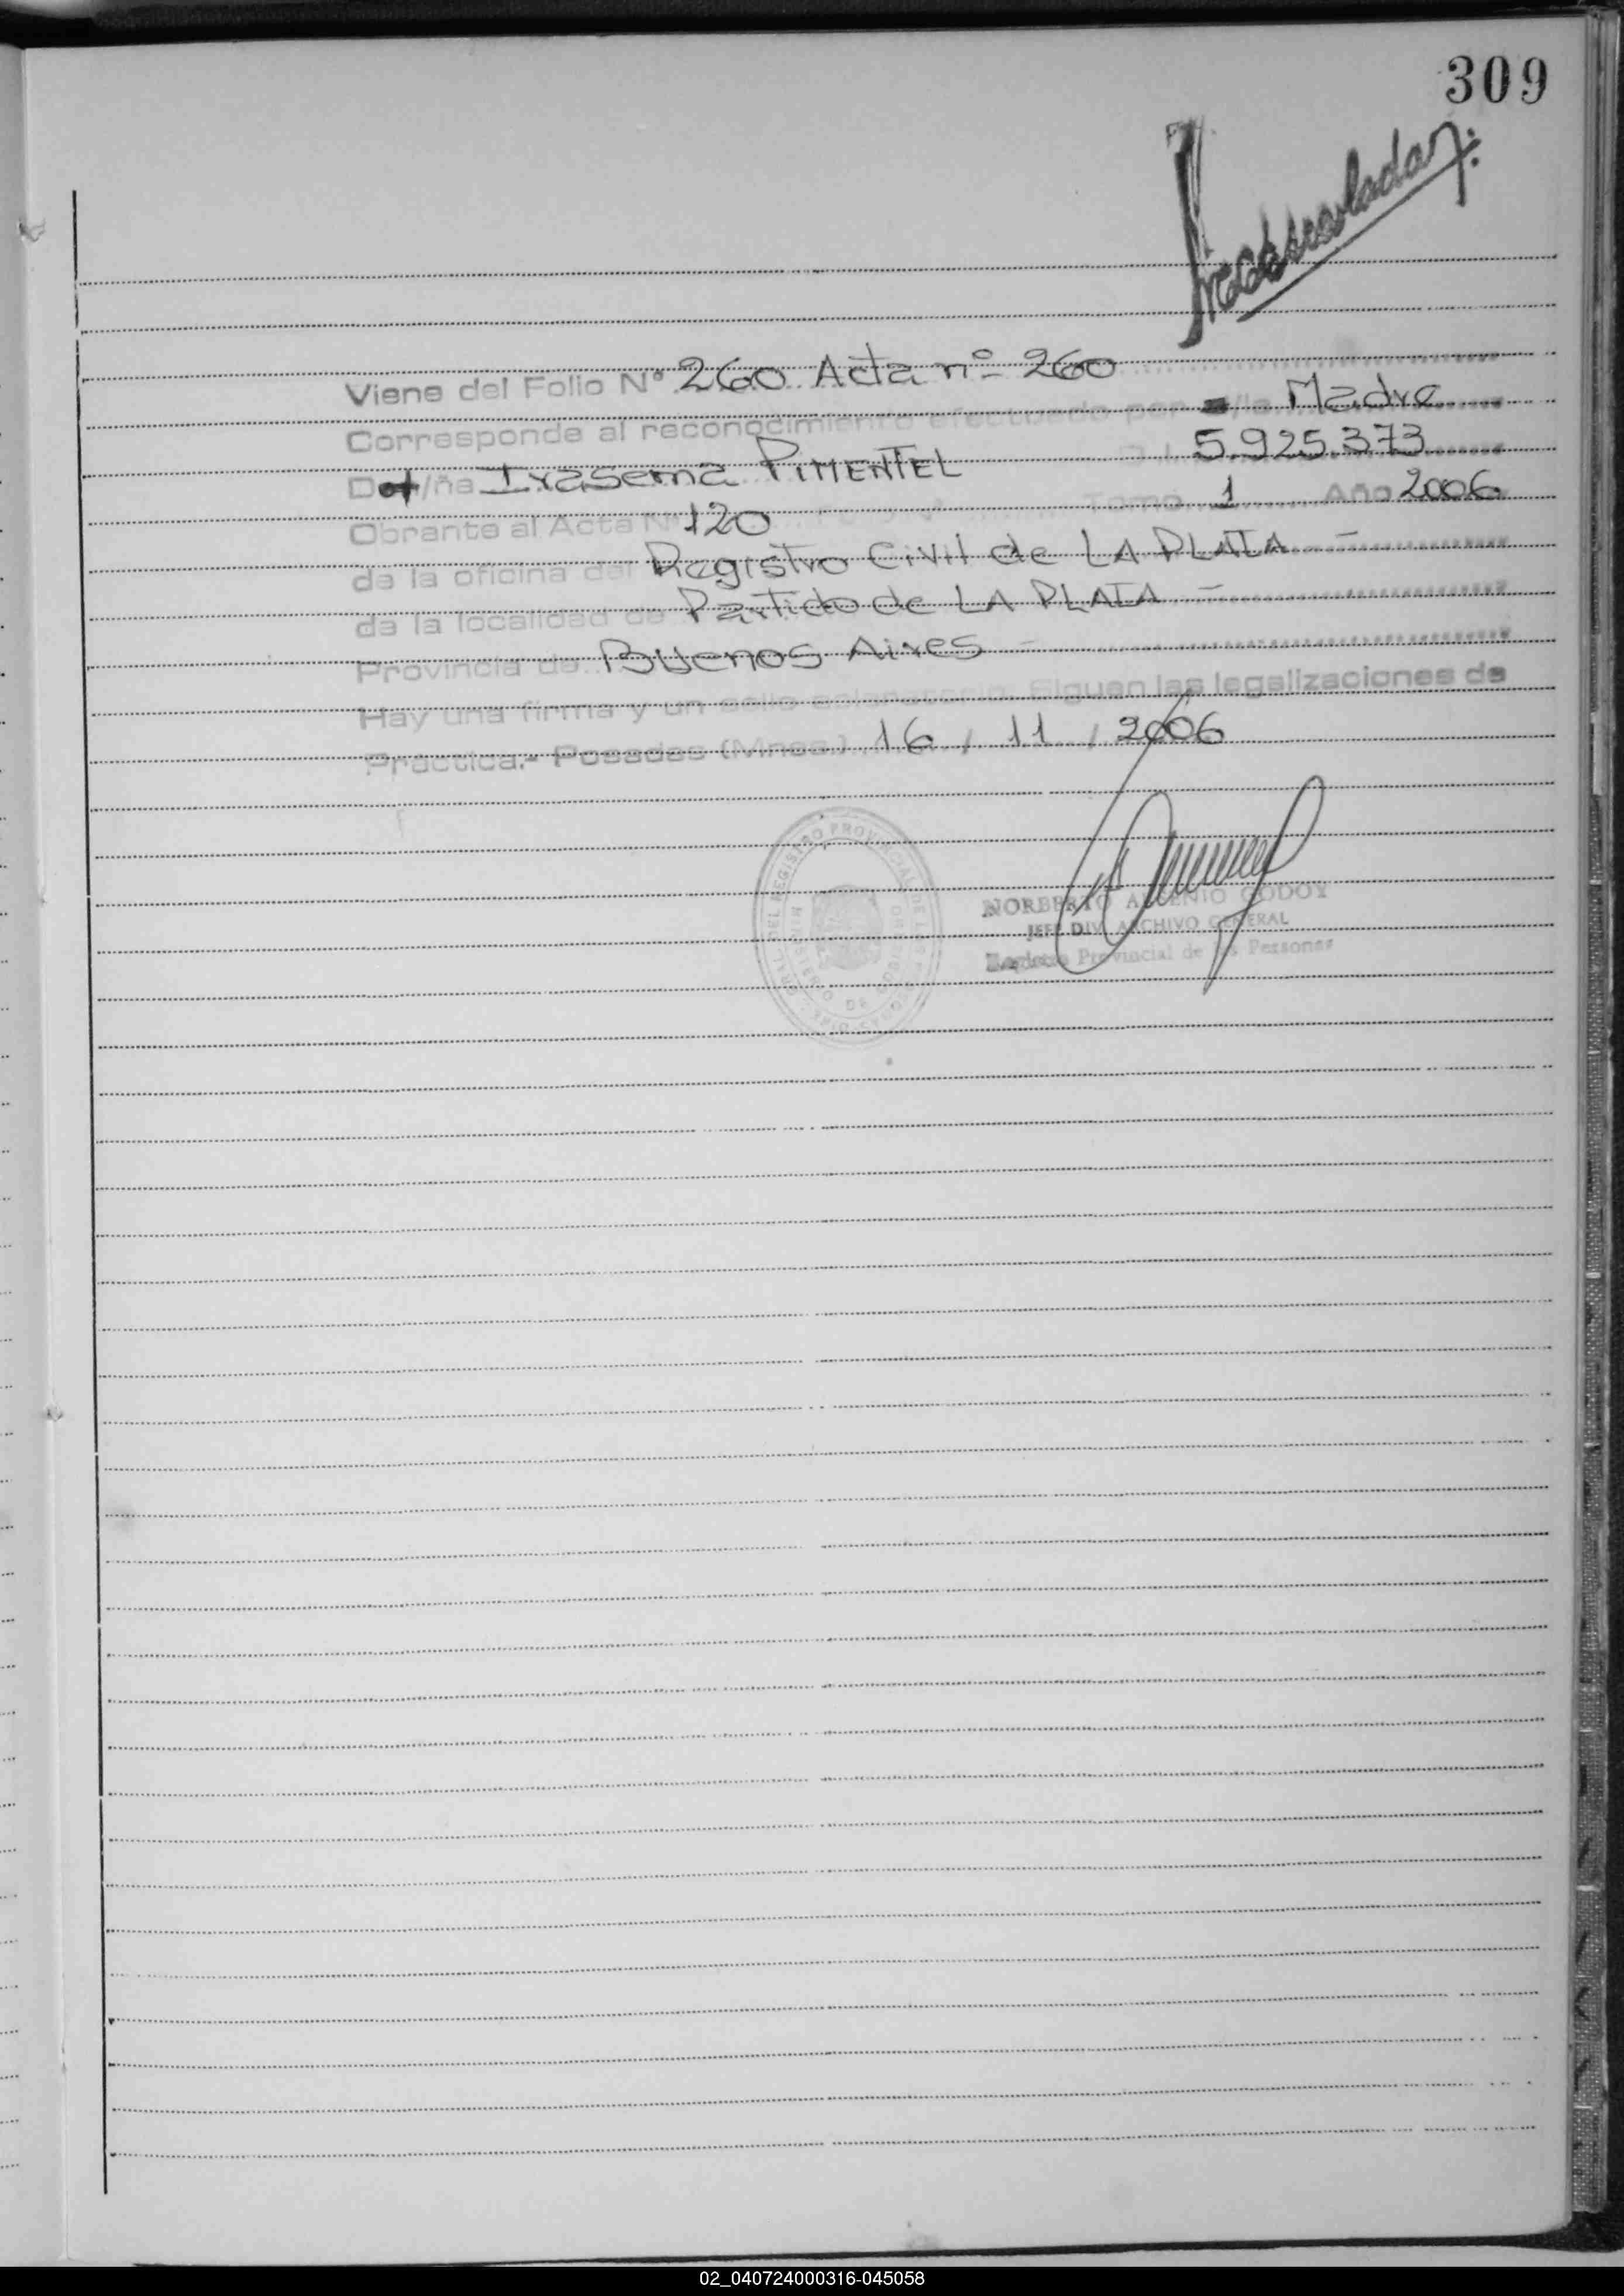 309
Viene del Folio Nº 260 Acta nº 260
Corresponde al reconocimiento efectuado por /la Madre
Do/ña Irasema PIMENTEL 5.925.373
Obrante al Acta Nº 120 Tomo 1 Año 2006
de la oficina del Registro Civil de LA PLATA -
de la localidad de Partido de LA PLATA -
Provincia de Buenos Aires -
Hay una firma y un sello aclaratorio. Siguen las legalizaciones de
Práctica.- Posadas (Mnes.) 16 / 11 / 2006
NORBERTO ARSENIO GODOY
JEFE DIV. ARCHIVO GENERAL
Registro Provincial de las Personas
02_040724000316-045058